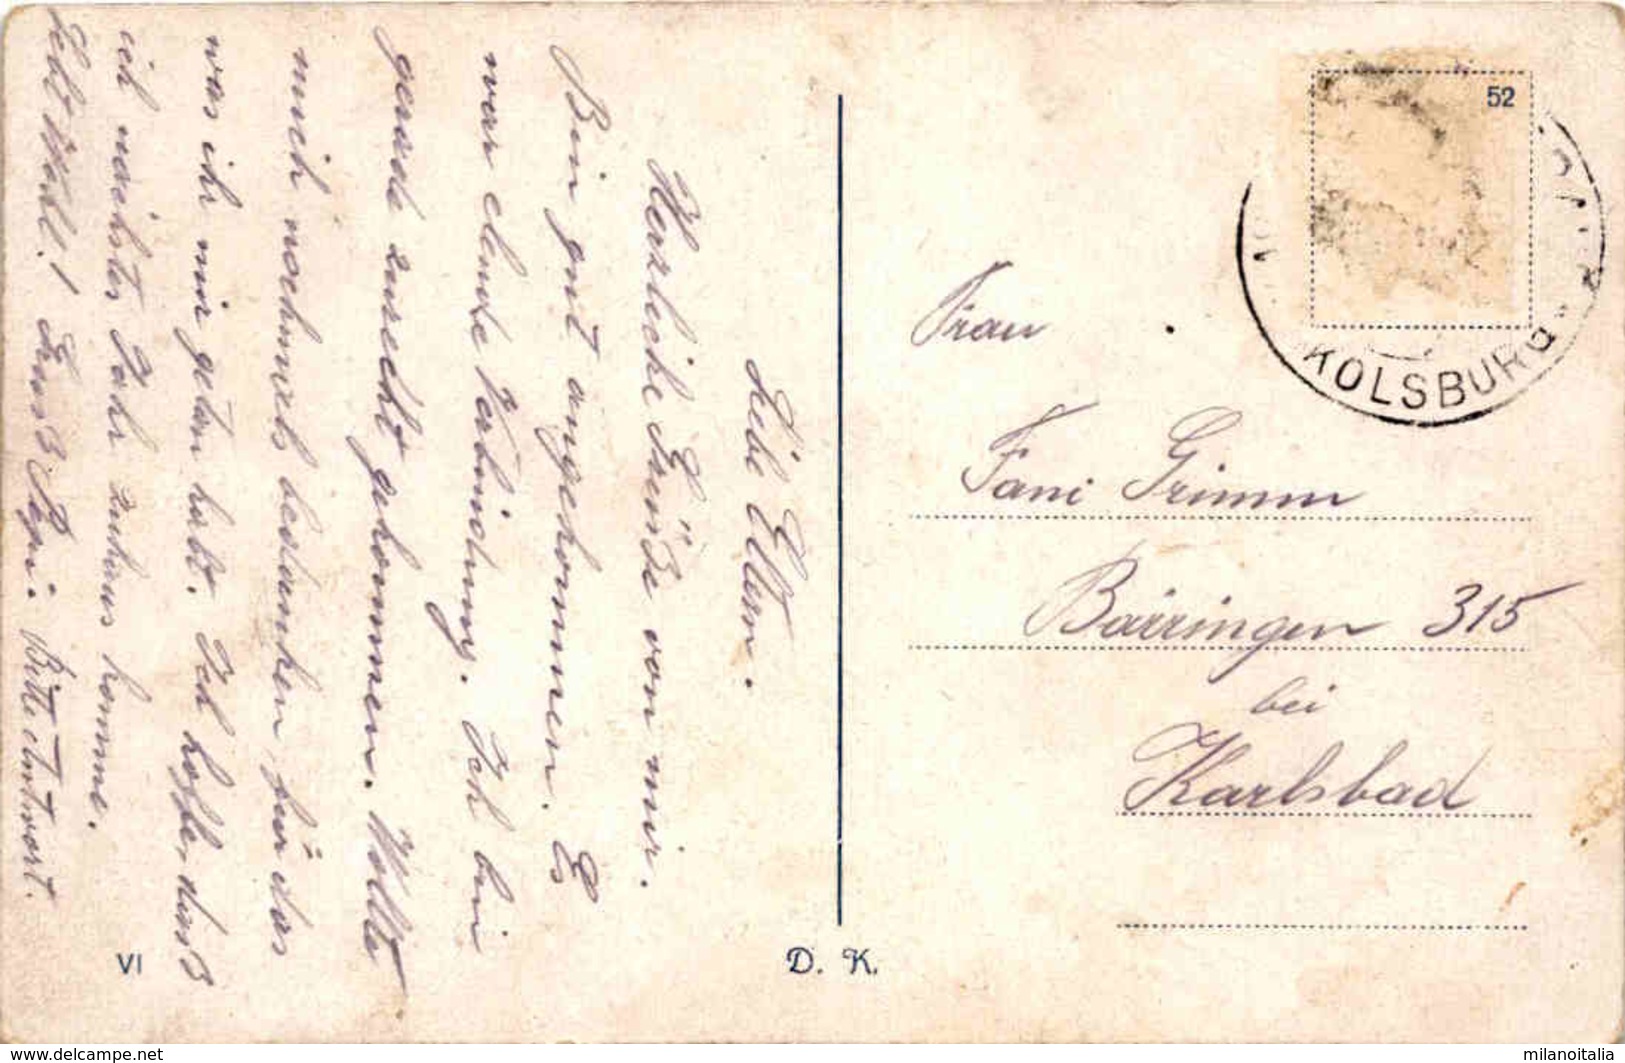 Liebe Eltern.
Herzliche Grüße von mir.
Bin gut angekommen. Es
war elende Verbindung. Ich bin
gerade zurecht gekommen. Wollte
mich nochmals bedanken, für das
was ihr mir getan habt. Ich hoffe, dass
ich nächstes Jahr zuhaus komme.
Lebt Wohl! Pepi. Bitte Antwort.
52
KOLSBURG
Frau
Fani Grimm
Bärringen 315
bei
Karlsbad
VI
D. K.
www.delcampe.net
milanoitalia